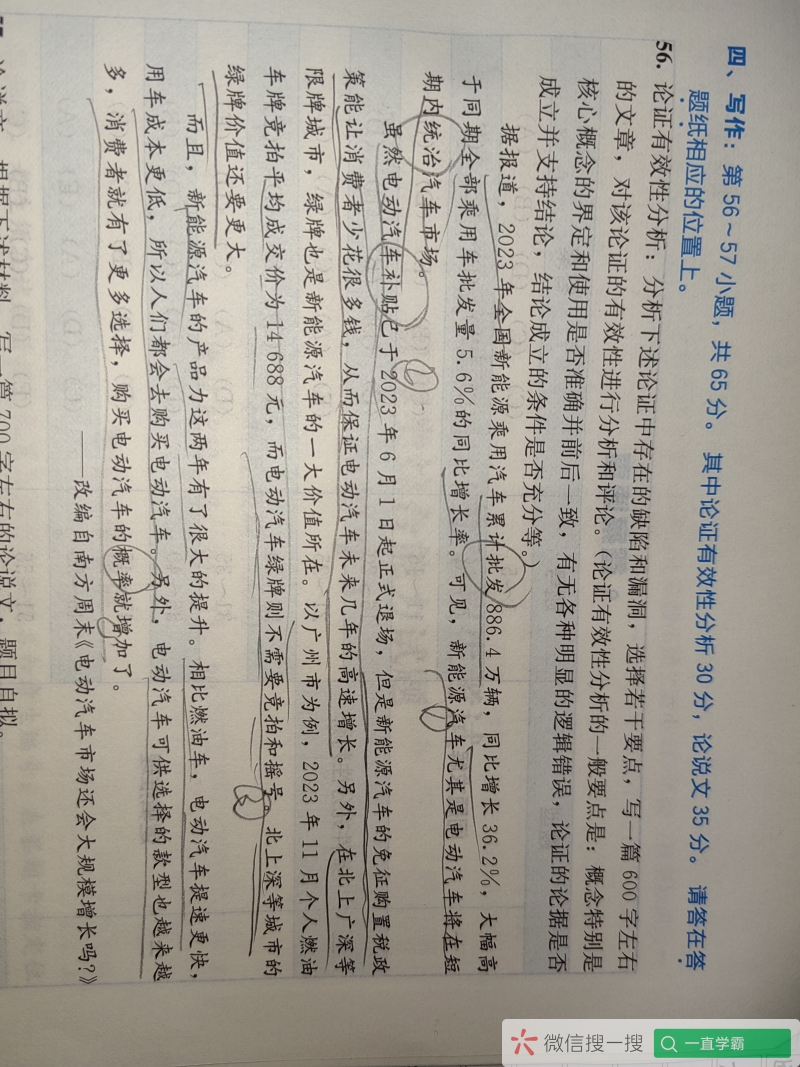 四、写作：第 56～57 小题，共 65 分。其中论证有效性分析 30 分，论说文 35 分。请答在答
题纸相应的位置上。
56. 论证有效性分析：分析下述论证中存在的缺陷和漏洞，选择若干要点，写一篇 600 字左右
的文章，对该论证的有效性进行分析和评论。（论证有效性分析的一般要点是：概念特别是
核心概念的界定和使用是否准确并前后一致，有无各种明显的逻辑错误，论证的论据是否
成立并支持结论，结论成立的条件是否充分等。）
据报道，2023 年全国新能源乘用汽车累计批发 886.4 万辆，同比增长 36.2%，大幅高
于同期全部乘用车批发量 5.6%的同比增长率。可见，新能源汽车尤其是电动汽车将在短
期内统治汽车市场。
虽然电动汽车补贴已于 2023 年 6 月 1 日起正式退场，但是新能源汽车的免征购置税政
策能让消费者少花很多钱，从而保证电动汽车未来几年的高速增长。另外，在北上广深等
限牌城市，绿牌也是新能源汽车的一大价值所在。以广州市为例，2023 年 11 月个人燃油
车牌竞拍平均成交价为 14 688 元，而电动汽车绿牌则不需要竞拍和摇号。北上深等城市的
绿牌价值还要更大。
而且，新能源汽车的产品力这两年有了很大的提升。相比燃油车，电动汽车提速更快，
用车成本更低，所以人们都会去购买电动汽车。另外，电动汽车可供选择的款型也越来越
多，消费者就有了更多选择，购买电动汽车的概率就增加了。
——改编自南方周末《电动汽车市场还会大规模增长吗？》
论说文：根据下述材料，写一篇 700 字左右的论说文，题目自拟。
微信搜一搜
一直学霸